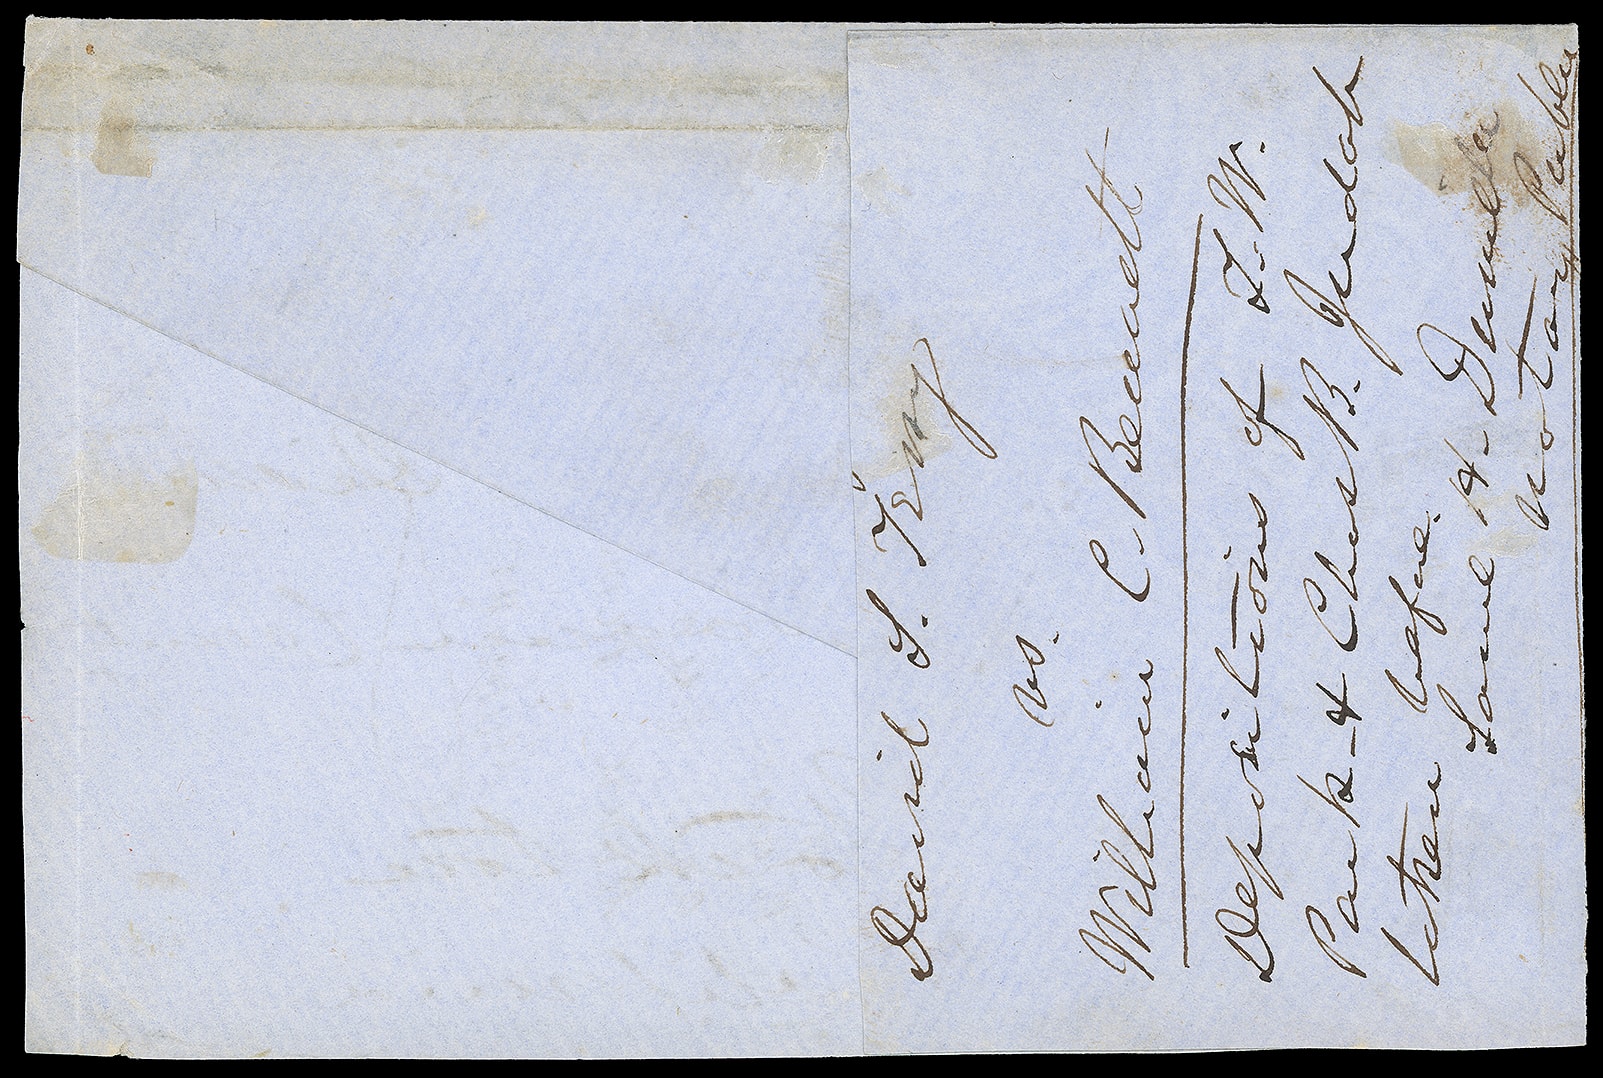 David S. Terry
vs.
William C. Bennett
Depositions of T. W.
Park & Chas B. Judah
taken before
Saml H.
Notary Public